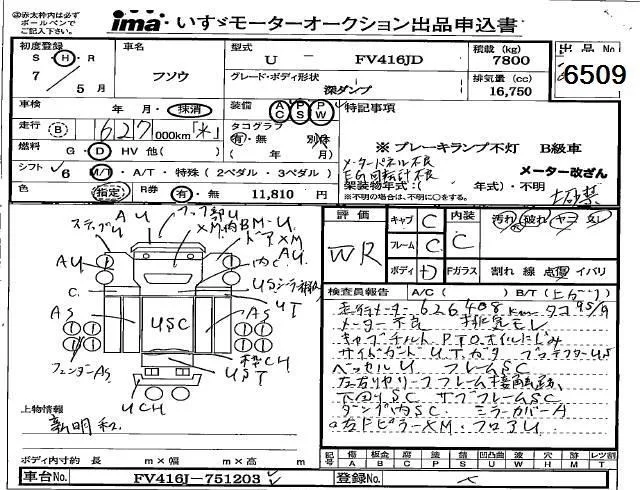 ㊟赤太枠内は必ず
ボールペンで
ご記入下さい。
ima いすゞモーターオークション出品申込書
初度登録 車名 型式 積載 (kg) 出品 No
S・H・R フソウ U － FV416JD 7800 6509
7 / 5月 グレード・ボディ形状 深ダンプ 排気量 (cc) 16,750
車検 年・月・抹消 装備 AC PS PW 特記事項
走行 B 627,000km「*」 タコグラフ 有・無 別体
※ ブレーキランプ不灯 B級車
燃料 G・D HV 他( ) ( 年/ 月)
メーターパネル不良 メーター改ざん
シフト 6 M/T・A/T・特殊(2ペダル・3ペダル)
EG回転計不良
架装物年式:( 年式)・不明
※不明の場合は、不明に○をする。
色 指定 R券 有・無 11,810 円 土砂禁
評価 WR
キャブ C 内装 C 汚れ 破れ ヤニ 臭い
フレーム C
ボディ D Fガラス 割れ 線 点傷 イバリ
検査員報告 A/C ( ) B/T (上がり)
走行メーター 626408km タコ95/9
メーター不良 排気モレ
キャブチルト PTOオイルにじみ
サイドガードUT カケ プロテクターUS
ベッセルU フレームSC
左右リヤリーフ フレーム接触跡
下回りSC サブフレームSC
ダンプ内SC ミラーカバーA
右Fピラー XM. フロアU
ステップU AU フック部U
XM.内BM-U
ドアXM
AU 内C AU
C USミラー
UT
AS USC AS
フェンダーAS 枠CH
UST
UCH
上物情報
新明和
ボディ内寸約 長 m×幅 m×高 m
記号 傷 A 板金 B 腐食 C サビ S 凹凸曲 U 波 W 穴 H 跡 M レツ割 T
車台No. FV416J－751203 登録No.